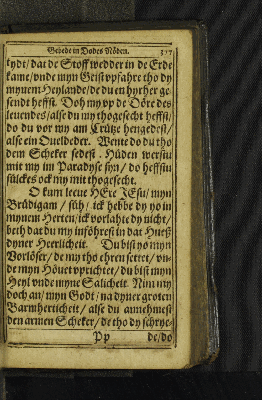 Gebede in Dodes Nöden. 317
tydt/ dat de Stoff wedder in de Erde
kame/ vnde myn Geist vpfahre tho dy
mynem Heylande/ de du en hyrher ge-
sendt heffst. Doh my vp de Döre des
leuendes/ alse du my thogesecht heffst/
do du vor my am Crütze hengedest/
alse ein Oueldeder. Wente do du tho
dem Scheker sedest. Hüden werstu
mit my im Paradyse syn/ do heffstu
sülckes ock my mit thogesecht.
O kum leeue HEre JEsu/ myn
Brüdigam/ süh/ ick hebbe dy yo in
mynem Herten/ ick vorlahte dy nicht/
beth dat du my inföhrest in dat Hueß
dyner Heerlicheit. Du bist yo myn
Vorlöser/ de my tho ehren settet/ vn-
de myn Höuet vprichtet/ du bist myn
Heyl vnde myne Salicheit. Nim my
doch an/ myn Godt/ na dyner groten
Barmherticheit/ alse du annehmest
den armen Scheker/ de tho dy schrye-
Pp de/ do